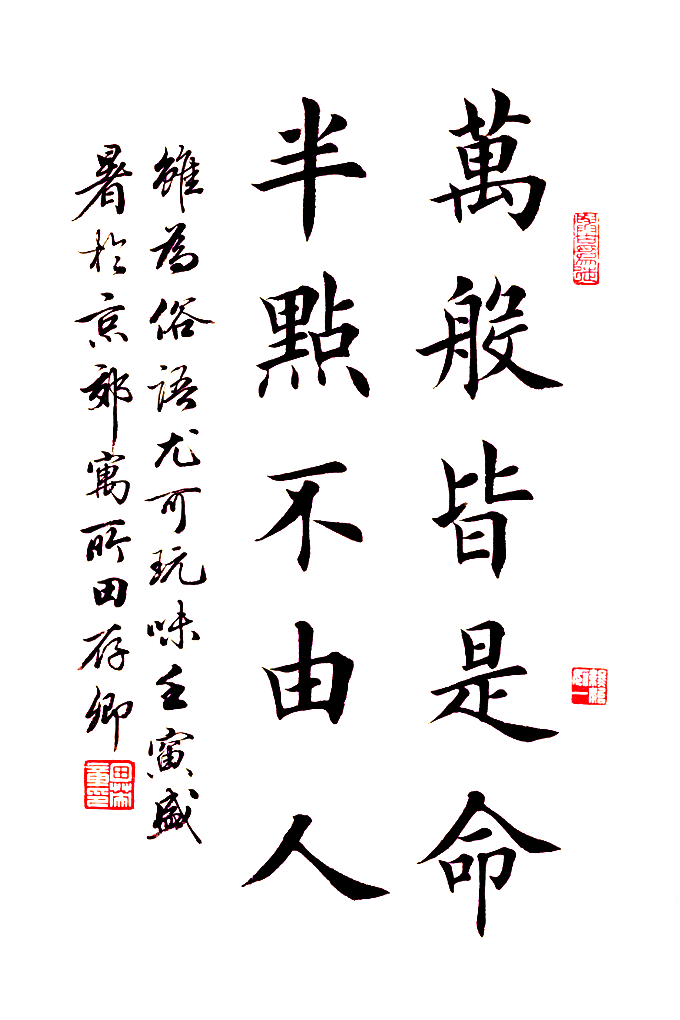 萬般皆是命
半點不由人
雖為俗語尤可玩味壬寅盛
暑於京郊寓所田存卿